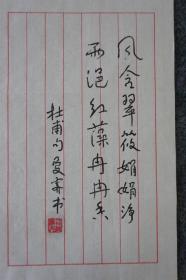 风含翠筱娟娟净
雨浥红蕖冉冉香
杜甫句 书